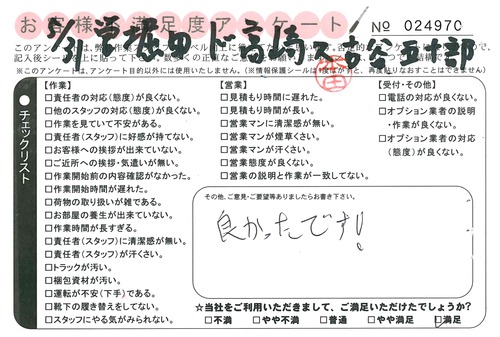 お客様満足度アンケート
№ 024970
5/31 営堀田 ド高崎 古谷
※このアンケート、アンケート目的以外には使用いたしません。(※情報保護シールは1度はがすと、再度貼りなおすことはできません)
チェックリスト
【作業】
□責任者の対応(態度)が良くない。
□他のスタッフの対応(態度)が良くない。
□作業を見ていて不安がある。
□責任者(スタッフ)に好感が持てない。
□お客様への挨拶が出来ていない。
□ご近所への挨拶・気遣いが無い。
□作業開始前の内容確認がなかった。
□作業開始時間が遅れた。
□荷物の取り扱いが雑である。
□お部屋の養生が出来ていない。
□作業時間が長すぎる。
□責任者(スタッフ)に清潔感が無い。
□責任者(スタッフ)が汗くさい。
□トラックが汚い。
□梱包資材が汚い。
□運転が不安(下手)である。
□靴下の履き替えをしてない。
□スタッフにやる気がみられない。
【営業】
□見積もり時間に遅れた。
□見積もり時間が長い。
□営業マンに清潔感が無い。
□営業マンが煙草くさい。
□営業マンが汗くさい。
□営業態度が良くない。
□営業の説明と作業が一致してない。
【受付・その他】
□電話の対応が良くない。
□オプション業者の説明
・作業が良くない。
□オプション業者の対応
(態度)が良くない。
その他、ご意見・ご要望等ありましたらお書き下さい。
良かったです!
☆当社をご利用いただきまして、ご満足いただけたでしょうか?
□不満 □やや不満 □普通 □やや満足 □満足